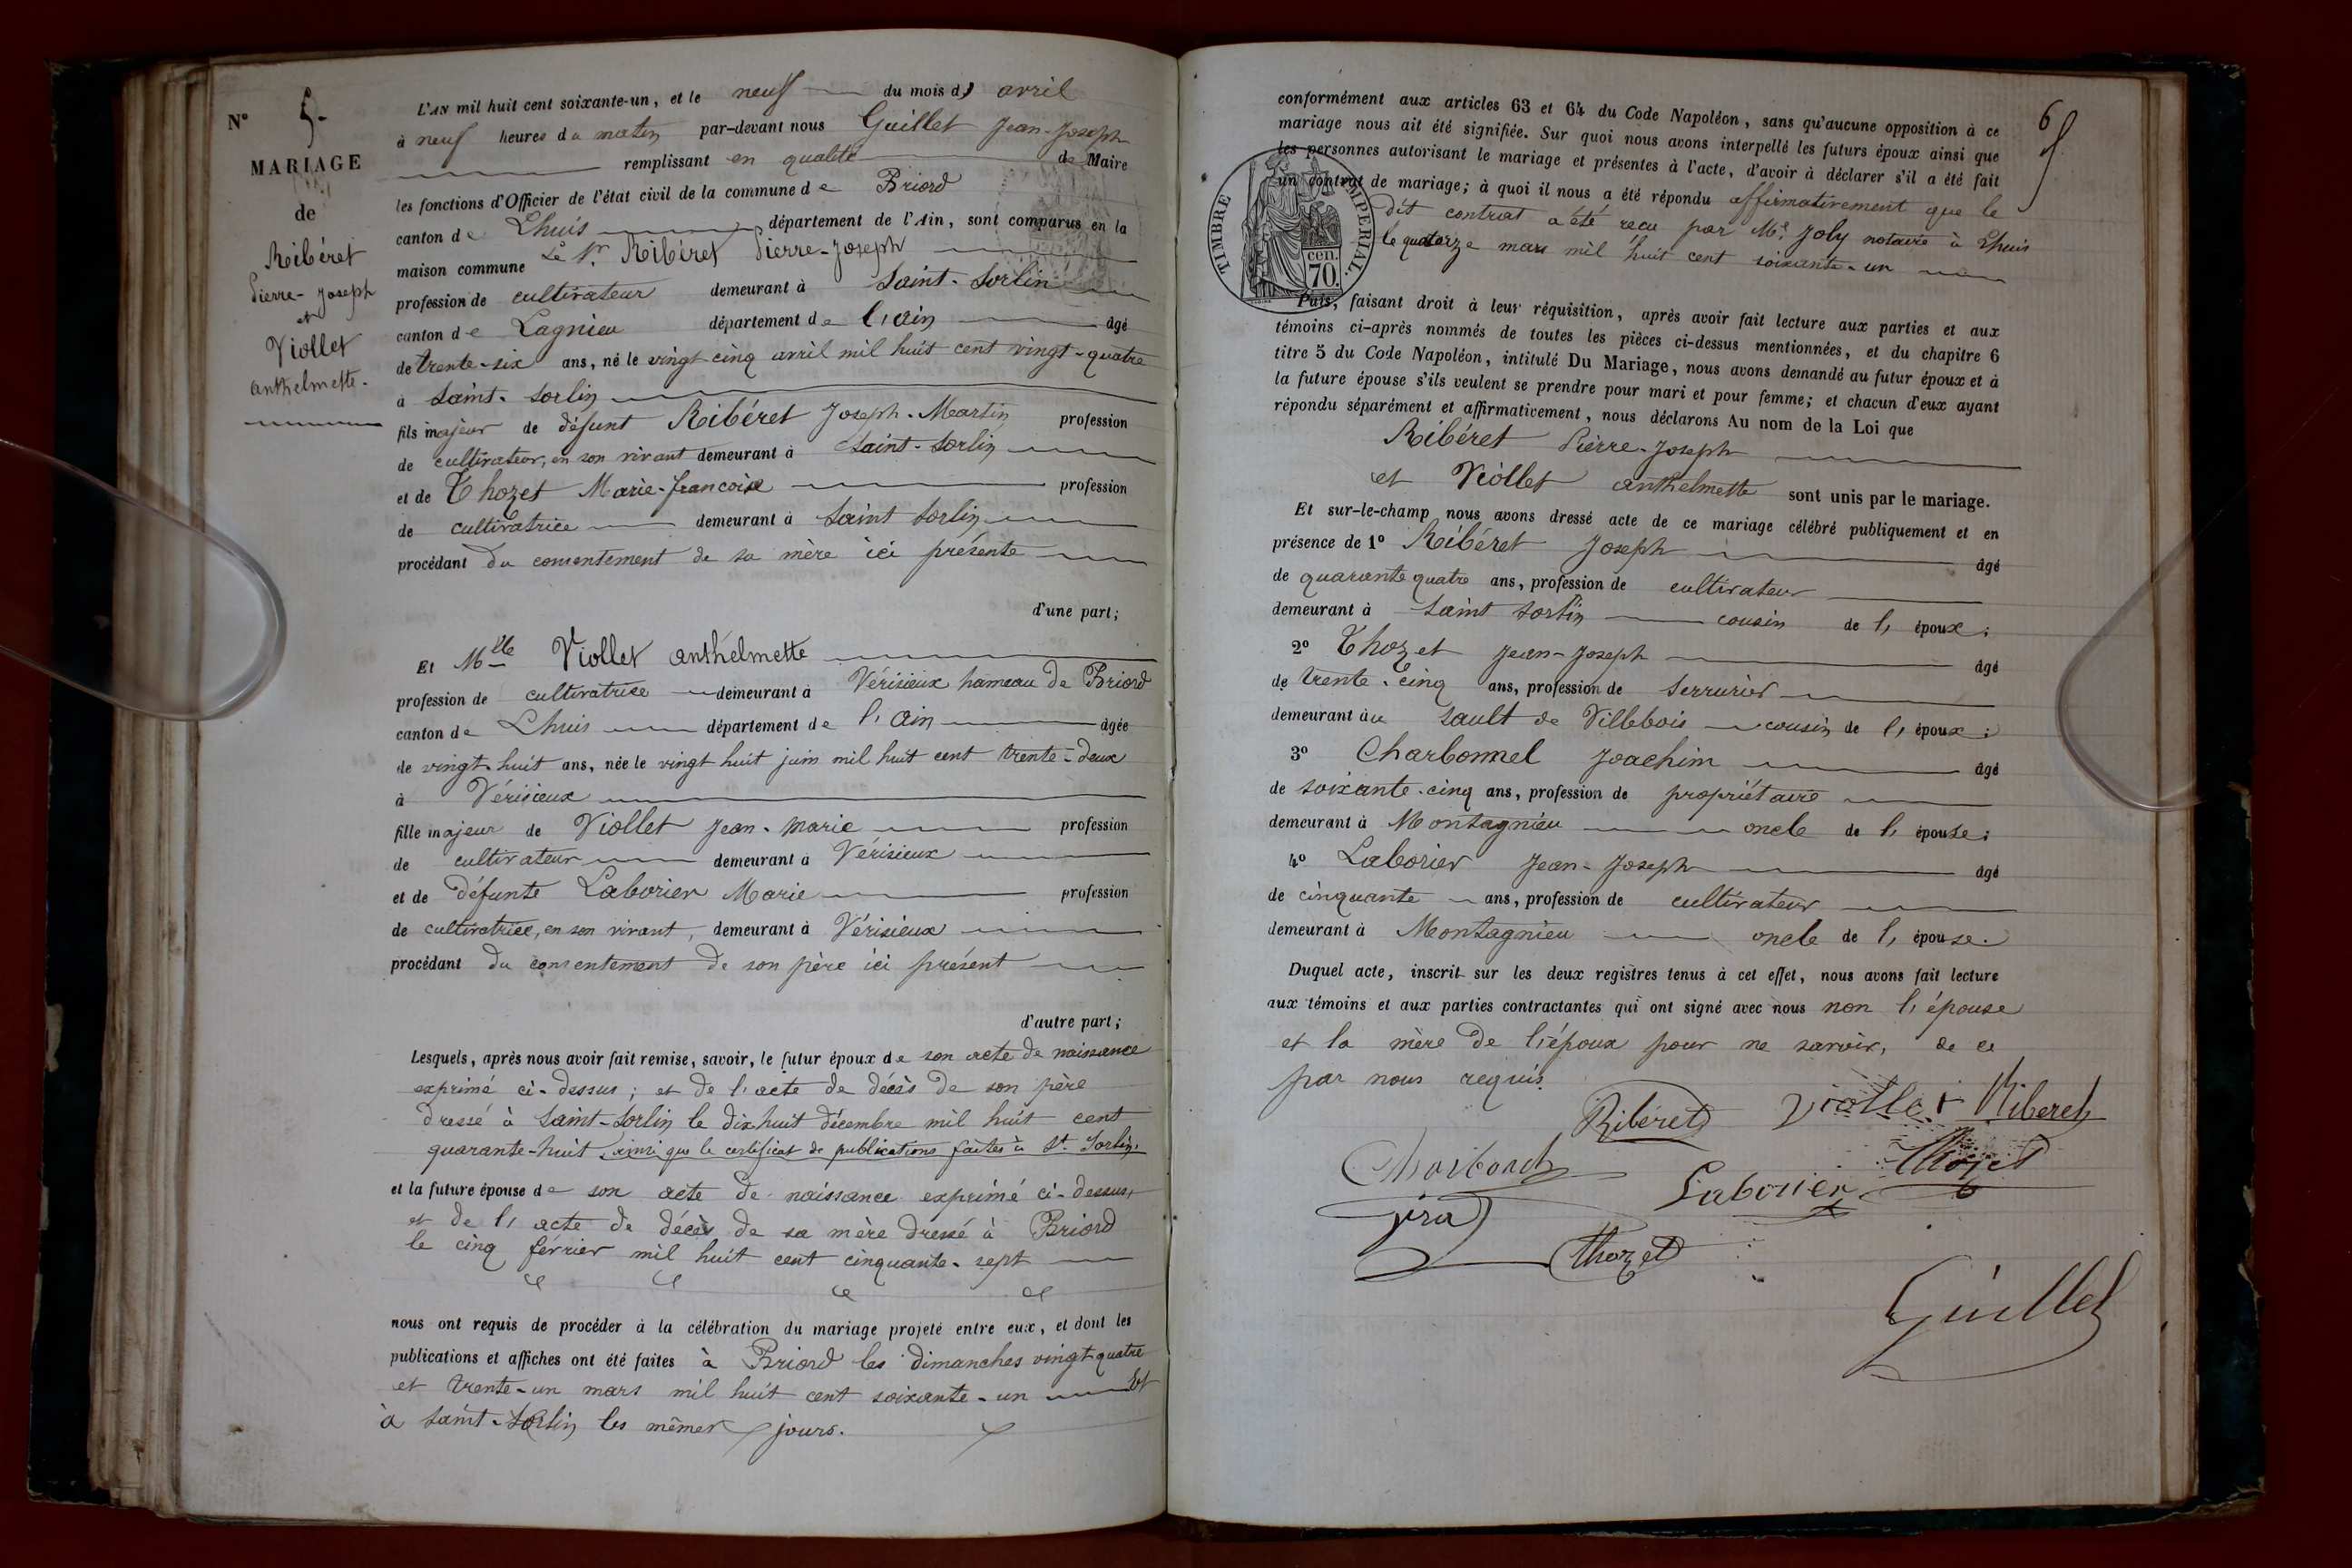 N° 5-
MARIAGE
de
Ribéret
Pierre-Joseph
et
Viollet
anthelmette.
L'AN mil huit cent soixante-un, et le neuf du mois d' avril
à neuf heures du matin par-devant nous Guillet Jean-Joseph
remplissant en qualité de Maire
les fonctions d'Officier de l'état civil de la commune de Briord
canton de Lhuis département de l'Ain, sont comparus en la
maison commune Le Sr. Ribéret Pierre-Joseph
profession de cultivateur demeurant à Saint-Sorlin
canton de Lagnieu département de l'ain âgé
de trente-six ans, né le vingt cinq avril mil huit cent vingt-quatre
à Saint-Sorlin
fils majeur de défunt Ribéret Joseph-Martin profession
de cultivateur, en son vivant demeurant à Saint-Sorlin
et de Thozet Marie-françoise profession
de cultivatrice demeurant à Saint Sorlin
procédant du consentement de sa mère ici présente
d'une part;
Et Mlle Viollet anthelmette
profession de cultivatrice demeurant à Vérisieux hameau de Briord
canton de Lhuis département de l'ain âgée
de vingt-huit ans, née le vingt huit juin mil huit cent trente-deux
à Vérisieux
fille majeur de Viollet Jean-Marie profession
de cultivateur demeurant à Vérisieux
et de défunte Laborier Marie profession
de cultivatrice, en son vivant, demeurant à Vérisieux
procédant du consentement de son père ici présent
d'autre part;
Lesquels, après nous avoir fait remise, savoir, le futur époux de son acte de naissance
exprimé ci-dessus; et de l'acte de décès de son père
dressé à Saint-Sorlin le dix huit décembre mil huit cent
quarante-huit, ainsi que le certificat de publications faites à St. Sorlin.
et la future épouse de son acte de naissance exprimé ci-dessus,
et de l'acte de décès de sa mère dressé à Briord
le cinq février mil huit cent cinquante-sept
nous ont requis de procéder à la célébration du mariage projeté entre eux, et dont les
publications et affiches ont été faites à Briord les dimanches vingt quatre
et trente-un mars mil huit cent soixante-un et
à Saint-Sorlin les mêmes jours.
6
conformément aux articles 63 et 64 du Code Napoléon, sans qu'aucune opposition à ce
mariage nous ait été signifiée. Sur quoi nous avons interpellé les futurs époux ainsi que
les personnes autorisant le mariage et présentes à l'acte, d'avoir à déclarer s'il a été fait
un contrat de mariage; à quoi il nous a été répondu affirmativement que le
dit contrat a été reçu par Me. Joly notaire à Lhuis
le quatorze mars mil huit cent soixante-un
TIMBRE IMPERIAL.
cen.
70.
Puis, faisant droit à leur réquisition, après avoir fait lecture aux parties et aux
témoins ci-après nommés de toutes les pièces ci-dessus mentionnées, et du chapitre 6
titre 5 du Code Napoléon, intitulé Du Mariage, nous avons demandé au futur époux et à
la future épouse s'ils veulent se prendre pour mari et pour femme; et chacun d'eux ayant
répondu séparément et affirmativement, nous déclarons Au nom de la Loi que
Ribéret Pierre-Joseph
et Viollet anthelmette sont unis par le mariage.
Et sur-le-champ nous avons dressé acte de ce mariage célébré publiquement et en
présence de 1° Ribéret Joseph âgé
de quarante quatre ans, profession de cultivateur
demeurant à Saint Sorlin cousin de l' époux;
2° Thozet Jean-Joseph âgé
de trente-cinq ans, profession de serrurier
demeurant au Sault de Villebois cousin de l' époux;
3° Charbonnel Joachim âgé
de soixante-cinq ans, profession de propriétaire
demeurant à Montagnieu oncle de l' épouse;
4° Laborier Jean-Joseph âgé
de cinquante ans, profession de cultivateur
demeurant à Montagnieu oncle de l' épouse.
Duquel acte, inscrit sur les deux registres tenus à cet effet, nous avons fait lecture
aux témoins et aux parties contractantes qui ont signé avec nous non l'épouse
et la mère de l'époux pour ne savoir, de ce
par nous requis.
Ribéret Viollet Riberet
Laborier Thozet
Thozet
Guillet